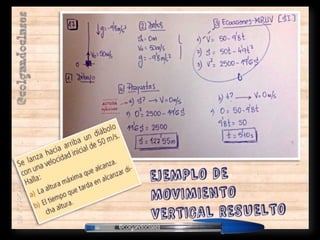 @colgandoclases
13
g: -9'8m/s²
V₀=50m/s
0
① Dibujo
② Datos
S₀=0m
V₀=50m/s
g: -9'8m/s²
③ Ecuaciones MRUV [S.I.]
1) V= 50-9'8t
2) S= 50t-4'9t²
3) V²= 2500-19'6S
④ Preguntas
a) S? → V=0m/s
3) 0²=2500-19'6S
19'6S=2500
S=127'55m
b) t? → V=0m/s
1) 0=50-9'8t
9'8t=50
t=5'10s
Se lanza hacia arriba un diábolo
con una velocidad inicial de 50 m/s.
Halla:
a) La altura máxima que alcanza.
b) El tiempo que tarda en alcanzar di-
cha altura.
EJEMPLO DE
MOVIMIENTO
VERTICAL RESUELTO
@colgandoclases